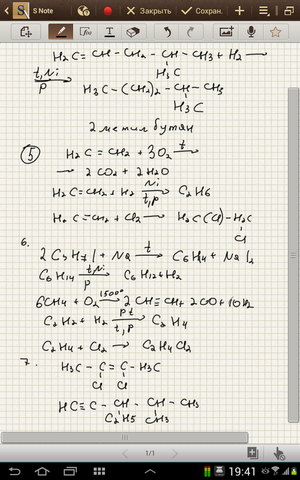 S Note
Закрыть
Сохран.
H₂C=CH-CH₂-CH-CH₃+H₂ →
H₃C
t,Ni
P
H₃C-(CH₂)₂-CH-CH₃
H₃C
2 метил бутан
5
H₂C=CH₂ + 3O₂ t→
→ 2CO₂ + 2H₂O
H₂C=CH₂+H₂ Ni t,p C₂H₆
H₂C=CH₂+Cl₂ → H₂C(Cl)-H₂C
Cl
6.
2C₃H₇I+Na t→ C₆H₁₄+NaI₂
C₆H₁₄ t,Ni P C₆H₁₂+H₂
6CH₄+O₂ 1500° 2CH≡CH+2CO+10H₂
C₂H₂+H₂ Pt t,p C₂H₄
C₂H₄+Cl₂ → C₂H₄Cl₂
7.
H₃C-C=C-H₃C
Cl Cl
HC≡C-CH-CH-CH₃
C₂H₅ CH₃
1/1
19:41